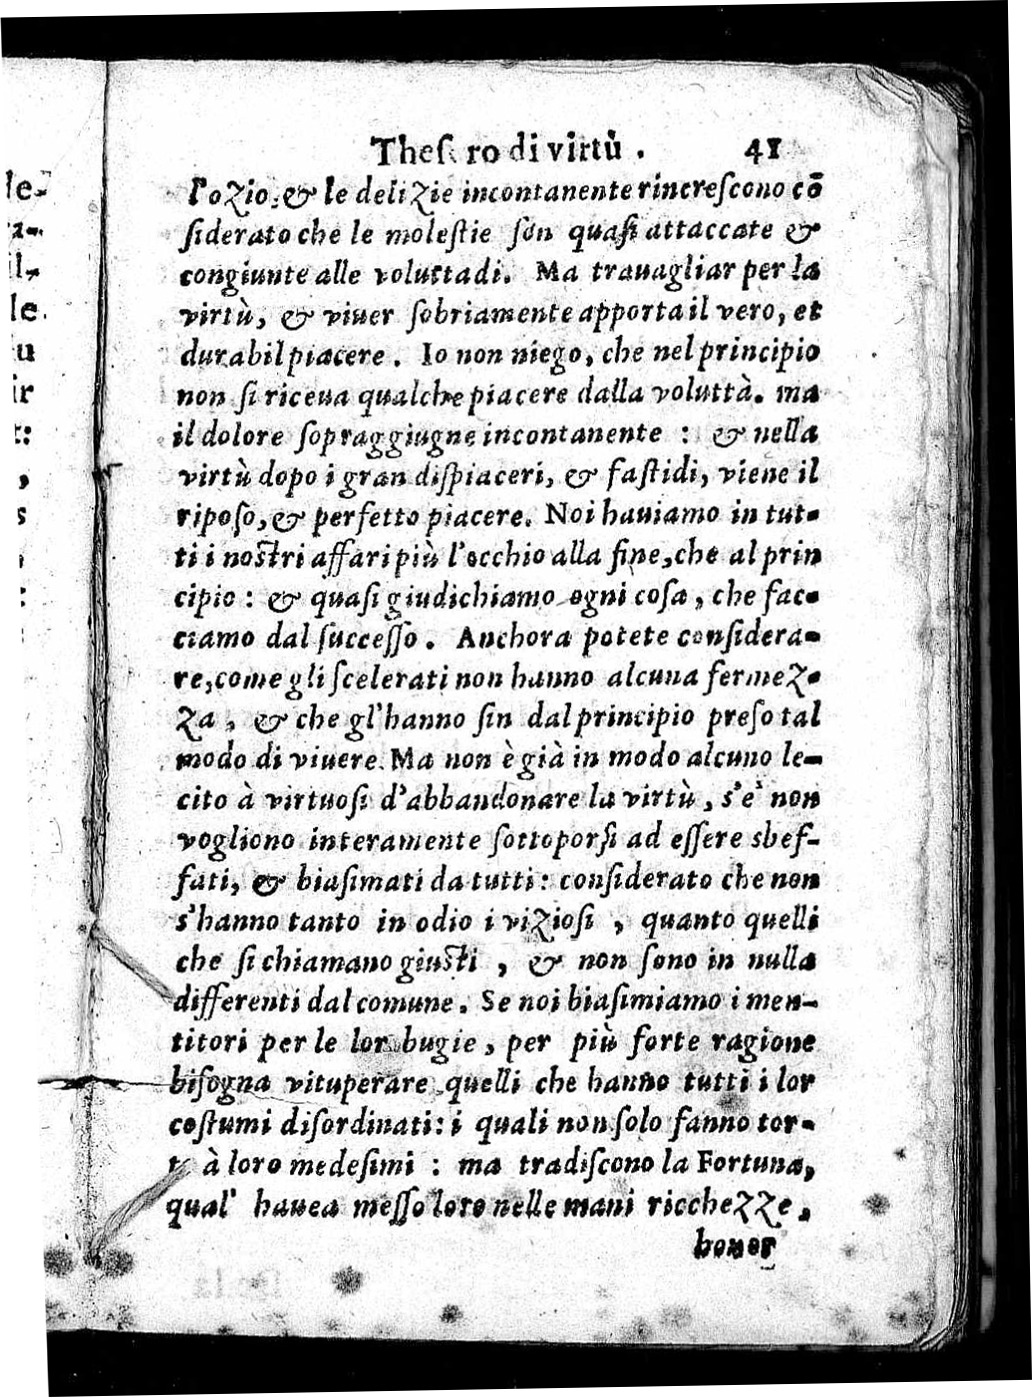 Thesoro di virtù . 41
l'ozio, & le delizie incontanente rincrescono cō
siderato che le molestie son quasi attaccate &
congiunte alle voluttadi. Ma trauagliar per la
virtù, & viuer sobriamente apporta il vero, et
durabil piacere. Io non niego, che nel principio
non si riceua qualche piacere dalla voluttà. ma
il dolore sopraggiugne incontanente : & nella
virtù dopo i gran dispiaceri, & fastidi, viene il
riposo, & perfetto piacere. Noi hauiamo in tut-
ti i nostri affari più l'occhio alla fine, che al prin
cipio : & quasi giudichiamo ogni cosa, che fac-
ciamo dal successo. Anchora potete considera-
re, come gli scelerati non hanno alcuna fermez-
za, & che gl'hanno sin dal principio preso tal
modo di viuere. Ma non è già in modo alcuno le-
cito à virtuosi d'abbandonare la virtù, s'e' non
vogliono interamente sottoporsi ad essere sbef-
fati, & biasimati da tutti: considerato che non
s'hanno tanto in odio i viziosi, quanto quelli
che si chiamano giusti, & non sono in nulla
differenti dal comune. Se noi biasimiamo i men-
titori per le lor bugie, per più forte ragione
bisogna vituperare quelli che hanno tutti i lor
costumi disordinati: i quali non solo fanno tor-
to à loro medesimi : ma tradiscono la Fortuna,
qual' hauea messo loro nelle mani ricchezze,
honor